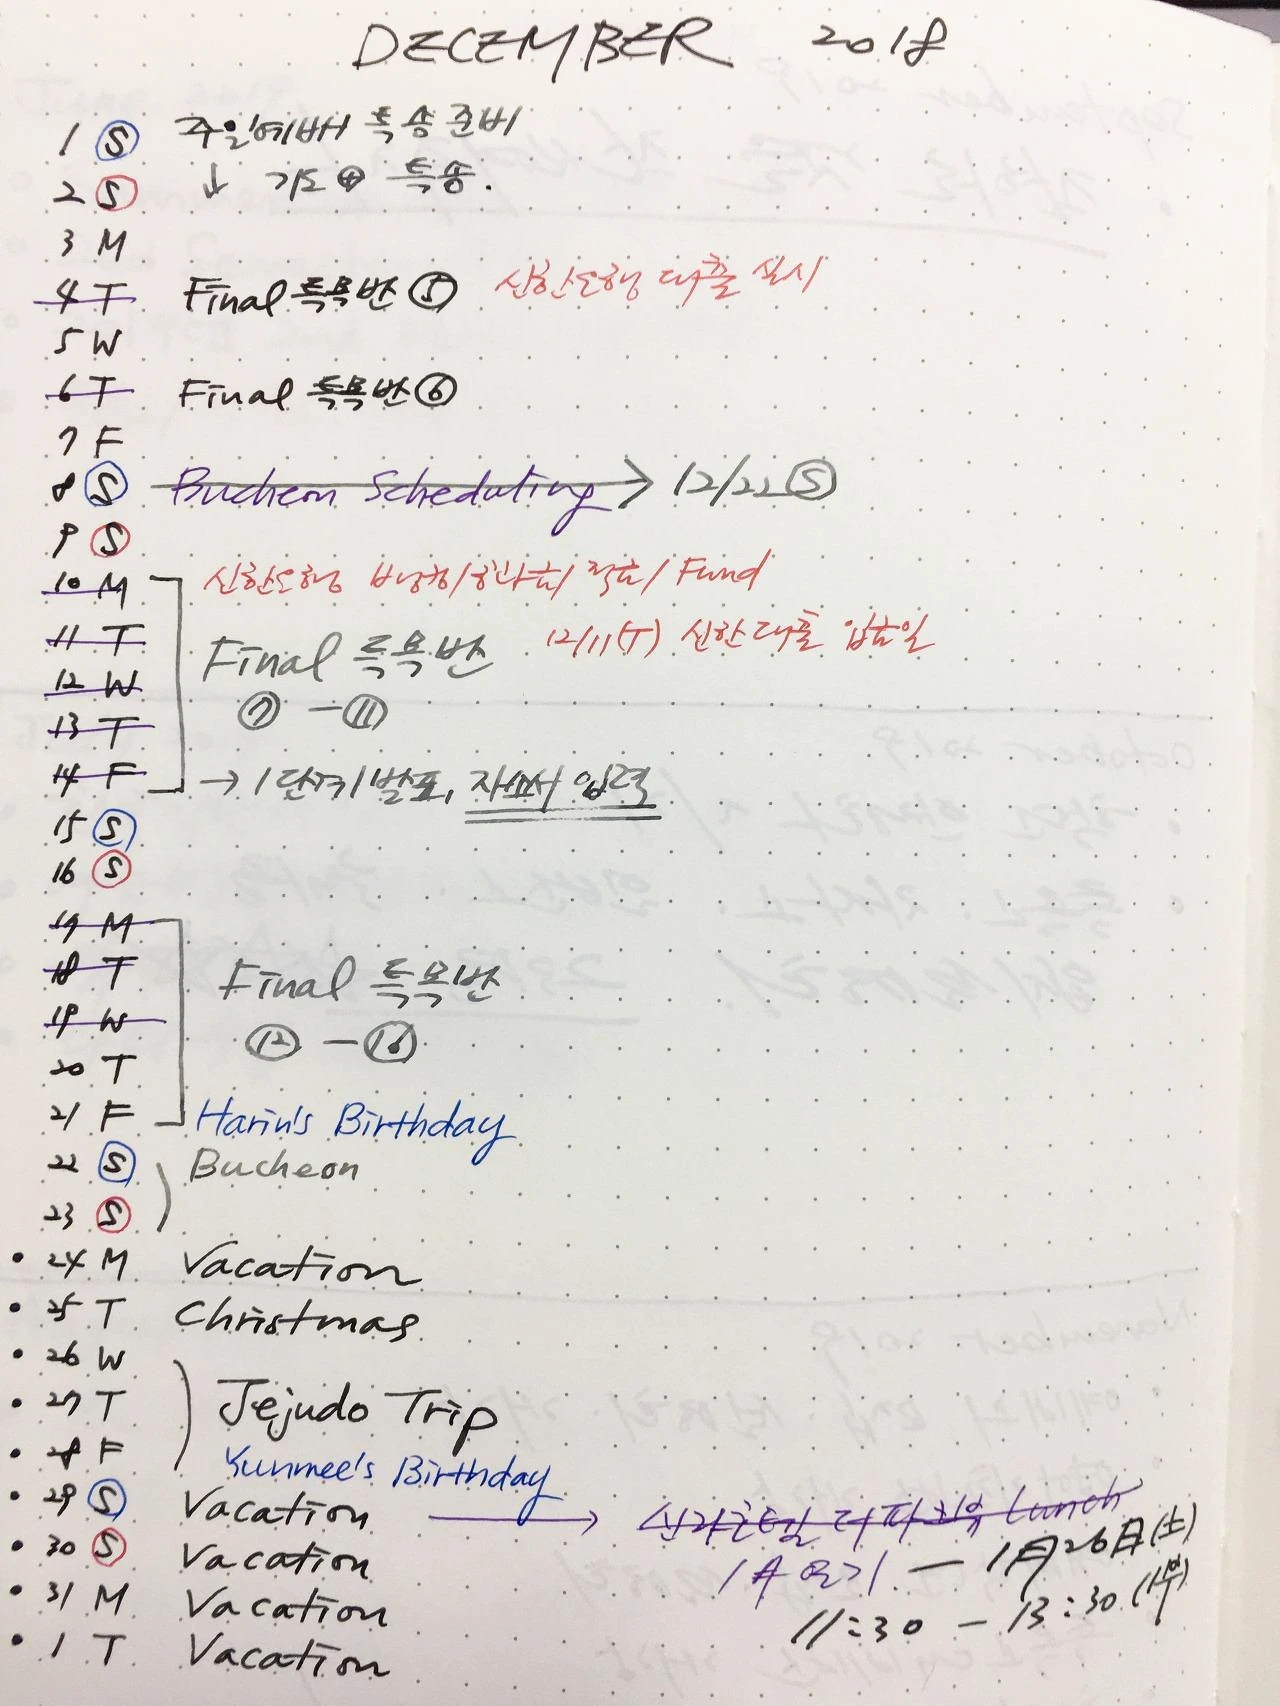 DECEMBER 2018
1 S 주일예배 특송준비
2 S ↓ 기도 + 특송.
3 M
4 T Final 특목반 ⑤ 신한은행 대출 실시
5 W
6 T Final 특목반 ⑥
7 F
8 S Bucheon Scheduling → 12/22 Ⓢ
9 S
10 M 신한은행 / 적금/ Fund
11 T Final 특목반 12/11(T) 신한대출 입금일
12 W
13 T ⑦ - ⑪
14 F → 1단계발표, 자소서 입력
15 S
16 S
17 M
18 T Final 특목반
19 W
20 T ⑫ - ⑯
21 F Harin's Birthday
22 S Bucheon
23 S
• 24 M Vacation
• 25 T Christmas
• 26 W
• 27 T Jejudo Trip
• 28 F Yunmee's Birthday
• 29 S Vacation → 신라호텔 더파크뷰 Lunch
• 30 S Vacation 1月 연기 - 1月26日(土)
• 31 M Vacation 11:30 - 13:30 (1부)
• 1 T Vacation